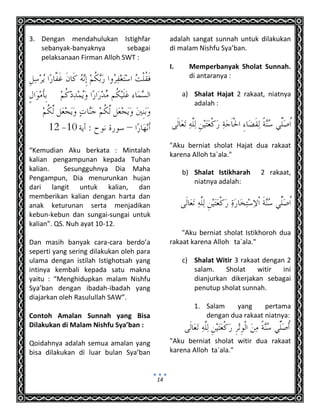 3. Dengan mendahulukan Istighfar
sebanyak-banyaknya sebagai
pelaksanaan Firman Alloh SWT :
فَقُلْتُ اسْتَغْفِرُوا رَبَّكُمْ إِنَّهُ كَانَ غَفَّارًا يُرْسِلِ
السَّمَاءَ عَلَيْكُمْ مِدْرَارًا وَيُمْدِدْكُمْ بِأَمْوَالٍ
وَبَنِينَ وَيَجْعَلْ لَكُمْ جَنَّاتٍ وَيَجْعَلْ لَكُمْ
أَنْهَارًا – سورة نوح : آية 10- 12
“Kemudian Aku berkata : Mintalah
kalian pengampunan kepada Tuhan
kalian. Sesungguhnya Dia Maha
Pengampun, Dia menurunkan hujan
dari langit untuk kalian, dan
memberikan kalian dengan harta dan
anak keturunan serta menjadikan
kebun-kebun dan sungai-sungai untuk
kalian”. QS. Nuh ayat 10-12.
Dan masih banyak cara-cara berdo’a
seperti yang sering dilakukan oleh para
ulama dengan istilah Istighotsah yang
intinya kembali kepada satu makna
yaitu : “Menghidupkan malam Nishfu
Sya’ban dengan ibadah-ibadah yang
diajarkan oleh Rasulullah SAW”.
Contoh Amalan Sunnah yang Bisa
Dilakukan di Malam Nishfu Sya’ban :
Qoidahnya adalah semua amalan yang
bisa dilakukan di luar bulan Sya’ban
adalah sangat sunnah untuk dilakukan
di malam Nishfu Sya’ban.
I. Memperbanyak Sholat Sunnah.
di antaranya :
a) Shalat Hajat 2 rakaat, niatnya
adalah :
أُصَلِّي سُنَّةً لِقَضَاءِ الْحَاجَةِ رَكْعَتَيْنِ لِلَّهِ تَعَالَى
"Aku berniat shalat Hajat dua rakaat
karena Alloh ta`ala."
b) Shalat Istikharah 2 rakaat,
niatnya adalah:
أُصَلِّي سُنَّةَ الْاِسْتِخَارَةِ رَكْعَتَيْنِ لِلَّهِ تَعَالَى
"Aku berniat shalat Istikhoroh dua
rakaat karena Alloh ta`ala."
c) Shalat Witir 3 rakaat dengan 2
salam. Sholat witir ini
dianjurkan dikerjakan sebagai
penutup sholat sunnah.
1. Salam yang pertama
dengan dua rakaat niatnya:
أُصَلِّي سُنَّةً مِنَ الْوِتْرِ رَكْعَتَيْنِ لِلَّهِ تَعَالَى
"Aku berniat sholat witir dua rakaat
karena Alloh ta`ala."
14